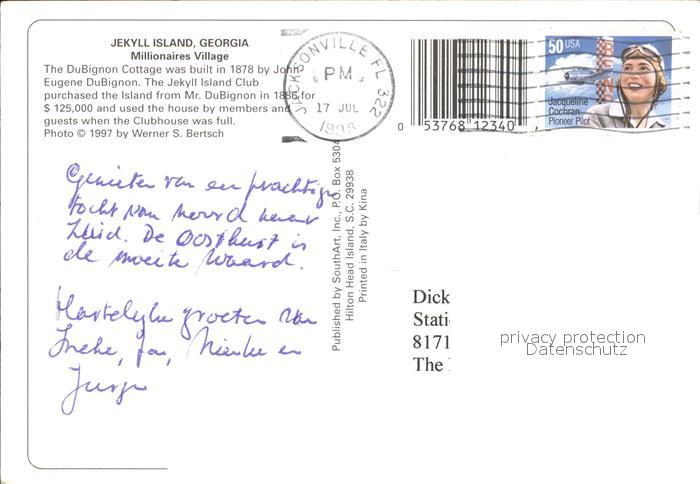 JEKYLL ISLAND, GEORGIA
Millionaires Village
The DuBignon Cottage was built in 1878 by John
Eugene DuBignon. The Jekyll Island Club
purchased the Island from Mr. DuBignon in 1886 for
$ 125,000 and used the house by members and
guests when the Clubhouse was full.
Photo © 1997 by Werner S. Bertsch
JACKSONVILLE FL 322
PM
17 JUL
1998
0 53768 12340
50 USA
Jacqueline
Cochran
Pioneer Pilot
Genieten van een prachtige
tocht van noord naar
Zuid. De Oostkust is
de moeite waard.
Hartelijke groeten van
Ineke, Jan, Nienke en
Published by SouthArt, Inc., P.O. Box 5304
Hilton Head Island, S.C. 29938
Printed in Italy by Kina
Dick
Stati
8171
The
privacy protection
Datenschutz